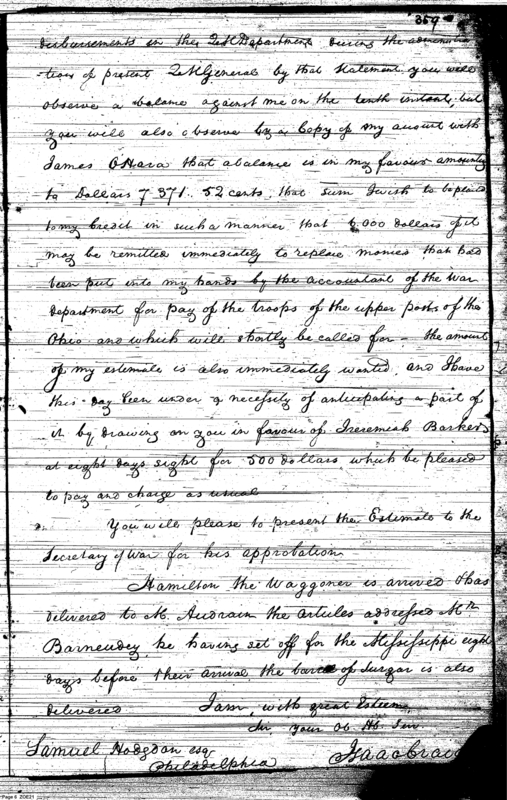 359
disbursements in the QM Department during the administra
-tion of present QM General by that statement you will
observe a balance against me on the tenth instant but
you will also observe by a Copy of my account with
James OHara that a balance is in my favour amounting
to Dollars 7371.. 52 cents that sum I wish to be placed
to my Credit in such a manner that 6.000 dollars of it
may be remitted immediately to replace monies that had
been put into my hands by the accountant of the War
department for pay of the troops of the upper posts of the
Ohio and which will shortly be called for - the amount
of my estimate is also immediately wanted, and I have
this day been under a necessity of anticipating a part of
it by drawing on you in favour of Jeremiah Barker
at eight days sight for 500 dollars which be pleased
to pay and charge as usual
You will please to present the Estimate to the
Secretary of War for his approbation
Hamilton the Waggoner is arrived & has
delivered to M. Audrain the articles addressed Mr
he having set off for the Mississippi eight
days before their arrival the of Surgar is also
delivered I am, with great Esteem,
Sir your Ob Hb Serv
Samuel Hodgdon esqr
Philadelphia
Isaac Craig
Page 6